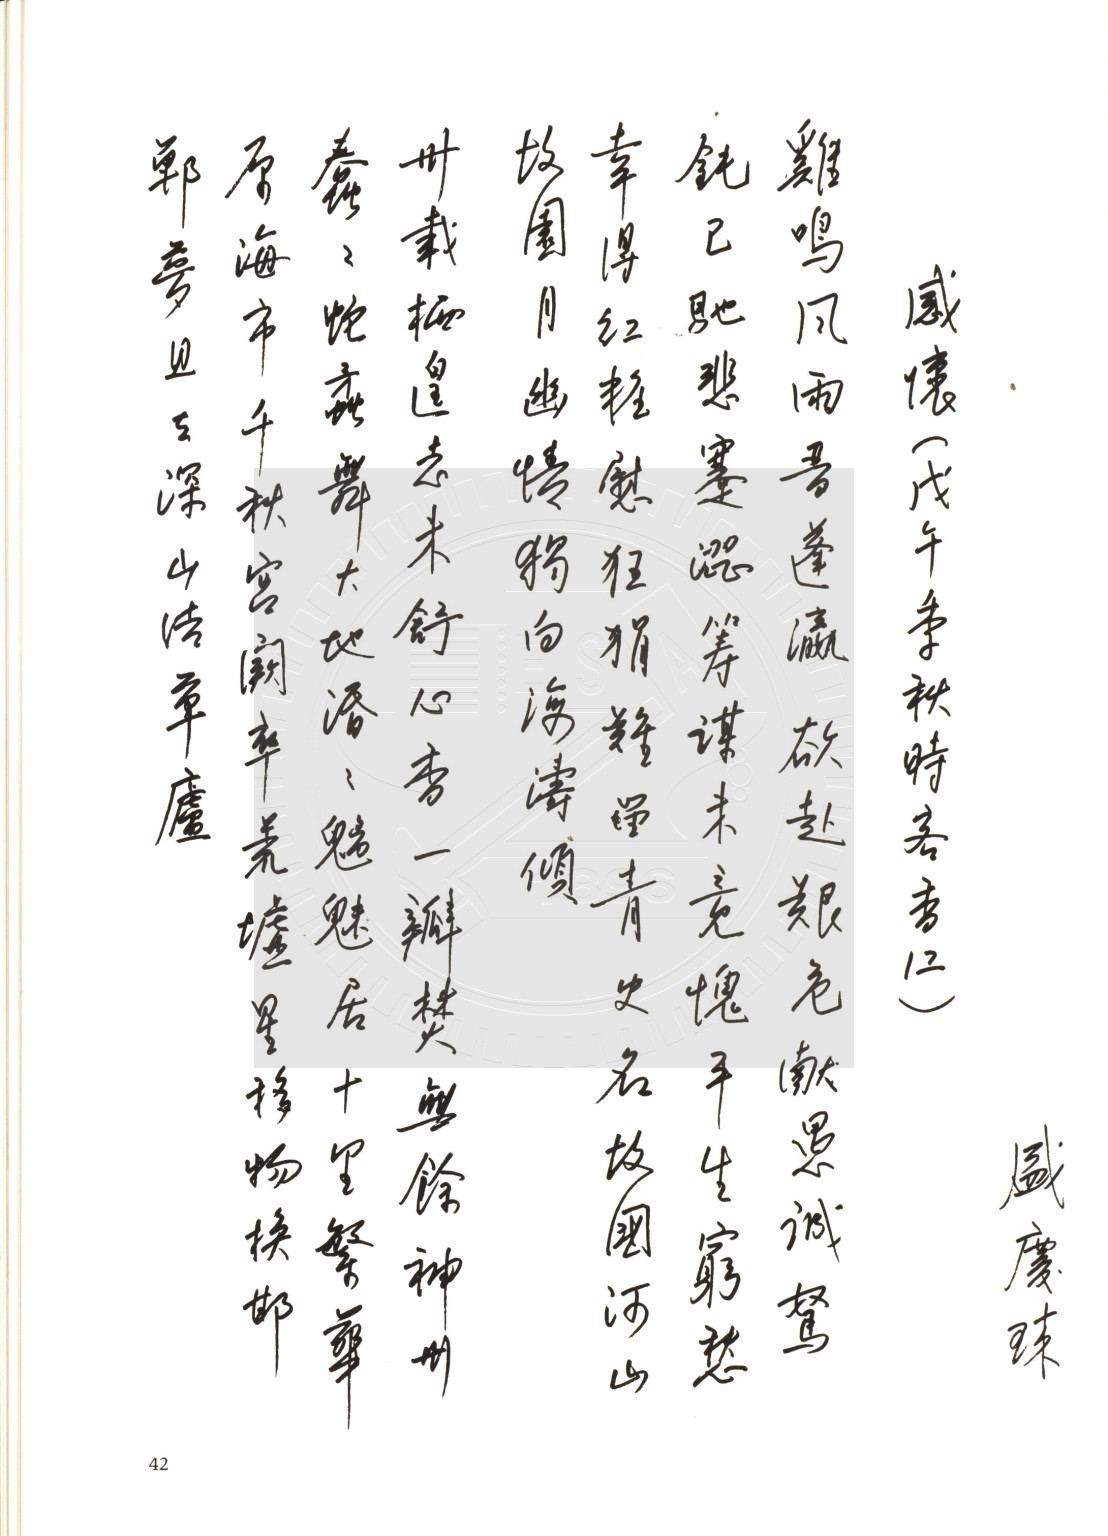 盛慶琜
感懷(戊午季秋時客香江)
雞鳴風雨晉蓬瀛欲赴艱危獻愚誠駑
鈍已馳悲蹇澀籌謀未竟愧平生窮愁
幸得紅粧慰狂狷難青史名故國河山
故園月幽情獨向海濤傾
卅載栖遑志未舒心香一瓣焚無餘神州
蠢々蛇舞大地湣々魑魅居十里繁華
原海市千秋宮闕卒荒墟星移物換邯
鄲夢且去深山結草廬
42